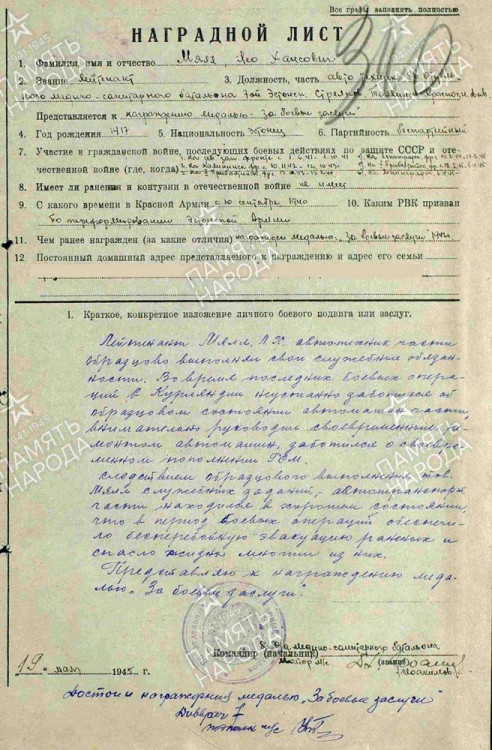 Все графы заполнять полностью
НАГРАДНОЙ ЛИСТ
1. Фамилия, имя и отчество Мялл, Лео Хансович
2. Звание лейтенант 3. Должность, часть автотехник
медико-санитарного батальона Эстонск. Стрелк. Таллинск. Краснозн. див.
Представляется к награждению медалью „За боевые заслуги"
4. Год рождения 1917 5. Национальность Эстонец 6. Партийность беспартийный
7. Участие в гражданской войне, последующих боевых действиях по защите СССР и оте-
чественной войне (где, когда)
8. Имеет ли ранения и контузии в отечественной войне не имеет
9. С какого времени в Красной Армии с сентября 1940 10. Каким РВК призван
По переформированию Эстонской Армии
11. Чем ранее награжден (за какие отличия) медалью „За боевые заслуги"
12. Постоянный домашний адрес представляемого к награждению и адрес его семьи
I. Краткое, конкретное изложение личного боевого подвига или заслуг.
Лейтенант Мялл, Л.Х. автотехник части
образцово выполнял свои служебные обязан-
ности. Во время последних боевых опера-
ций в Курляндии неустанно заботился об
образцовом состоянии автомашин части,
внимательно руководил своевременным ре-
монтом автомашин, заботился о своевре-
менном пополнении ГСМ.
Следствием образцового выполнения тов.
Мялл служебных заданий, автотранспорт
части находился в хорошем состоянии,
что в период боевых операций обеспечи-
ло бесперебойную эвакуацию раненых и
спасло жизни многим из них.
Представляю к награждению меда-
лью „За боевые заслуги".
медико-санитарного батальона
Командир (начальник) майор м/с
(звание)
19 " мая 1945 г.
Достоин награждения медалью „За боевые заслуги"
Дивврач
ПАМЯТЬ
НАРОДА